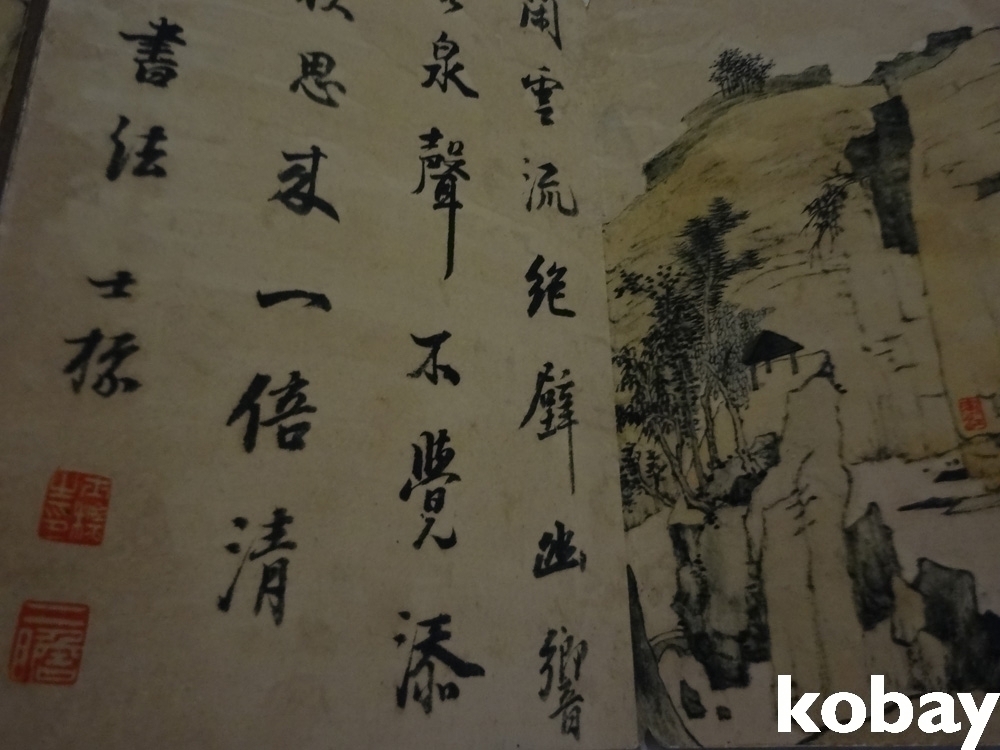 閑雲流絶壁幽響
泉聲不覺添
思來一倍清
書法 士標
kobay